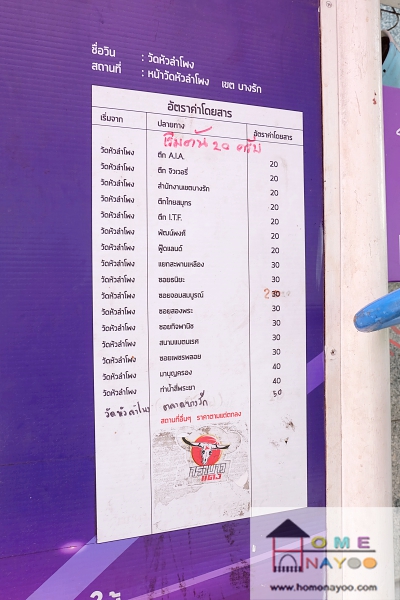 ชื่อวิน : วัดหัวลำโพง
สถานที่ : หน้าวัดหัวลำโพง เขต บางรัก
อัตราค่าโดยสาร
เริ่มจาก ปลายทาง อัตราค่าโดยสาร
เริ่มต้น 20 ครับ
วัดหัวลำโพง ตึก A.I.A. 20
วัดหัวลำโพง ตึก จิวเวอรี่ 20
วัดหัวลำโพง สำนักงานเขตบางรัก 20
วัดหัวลำโพง ตึกไทยสมุทร 20
วัดหัวลำโพง ตึก I.T.F. 20
วัดหัวลำโพง พัฒน์พงศ์ 20
วัดหัวลำโพง ฟู๊ดแลนด์ 20
วัดหัวลำโพง แยกสะพานเหลือง 30
วัดหัวลำโพง ซอยธนิยะ 30
วัดหัวลำโพง ซอยจอมสมบูรณ์ 30
วัดหัวลำโพง ซอยสองพระ 30
วัดหัวลำโพง ซอยทิพพานิช 30
วัดหัวลำโพง สนามแบดมเรศ 30
วัดหัวลำโพง ซอยเพชรพลอย 30
วัดหัวลำโพง มาบุญครอง 40
วัดหัวลำโพง ท่าน้ำสี่พระยา 40
วัดหัวลำโพง ตลาดบางรัก 50
สถานที่อื่นๆ ราคาตามแต่ตกลง
คาราบาว
แดง
HOME
NAYOO
www.homenayoo.com